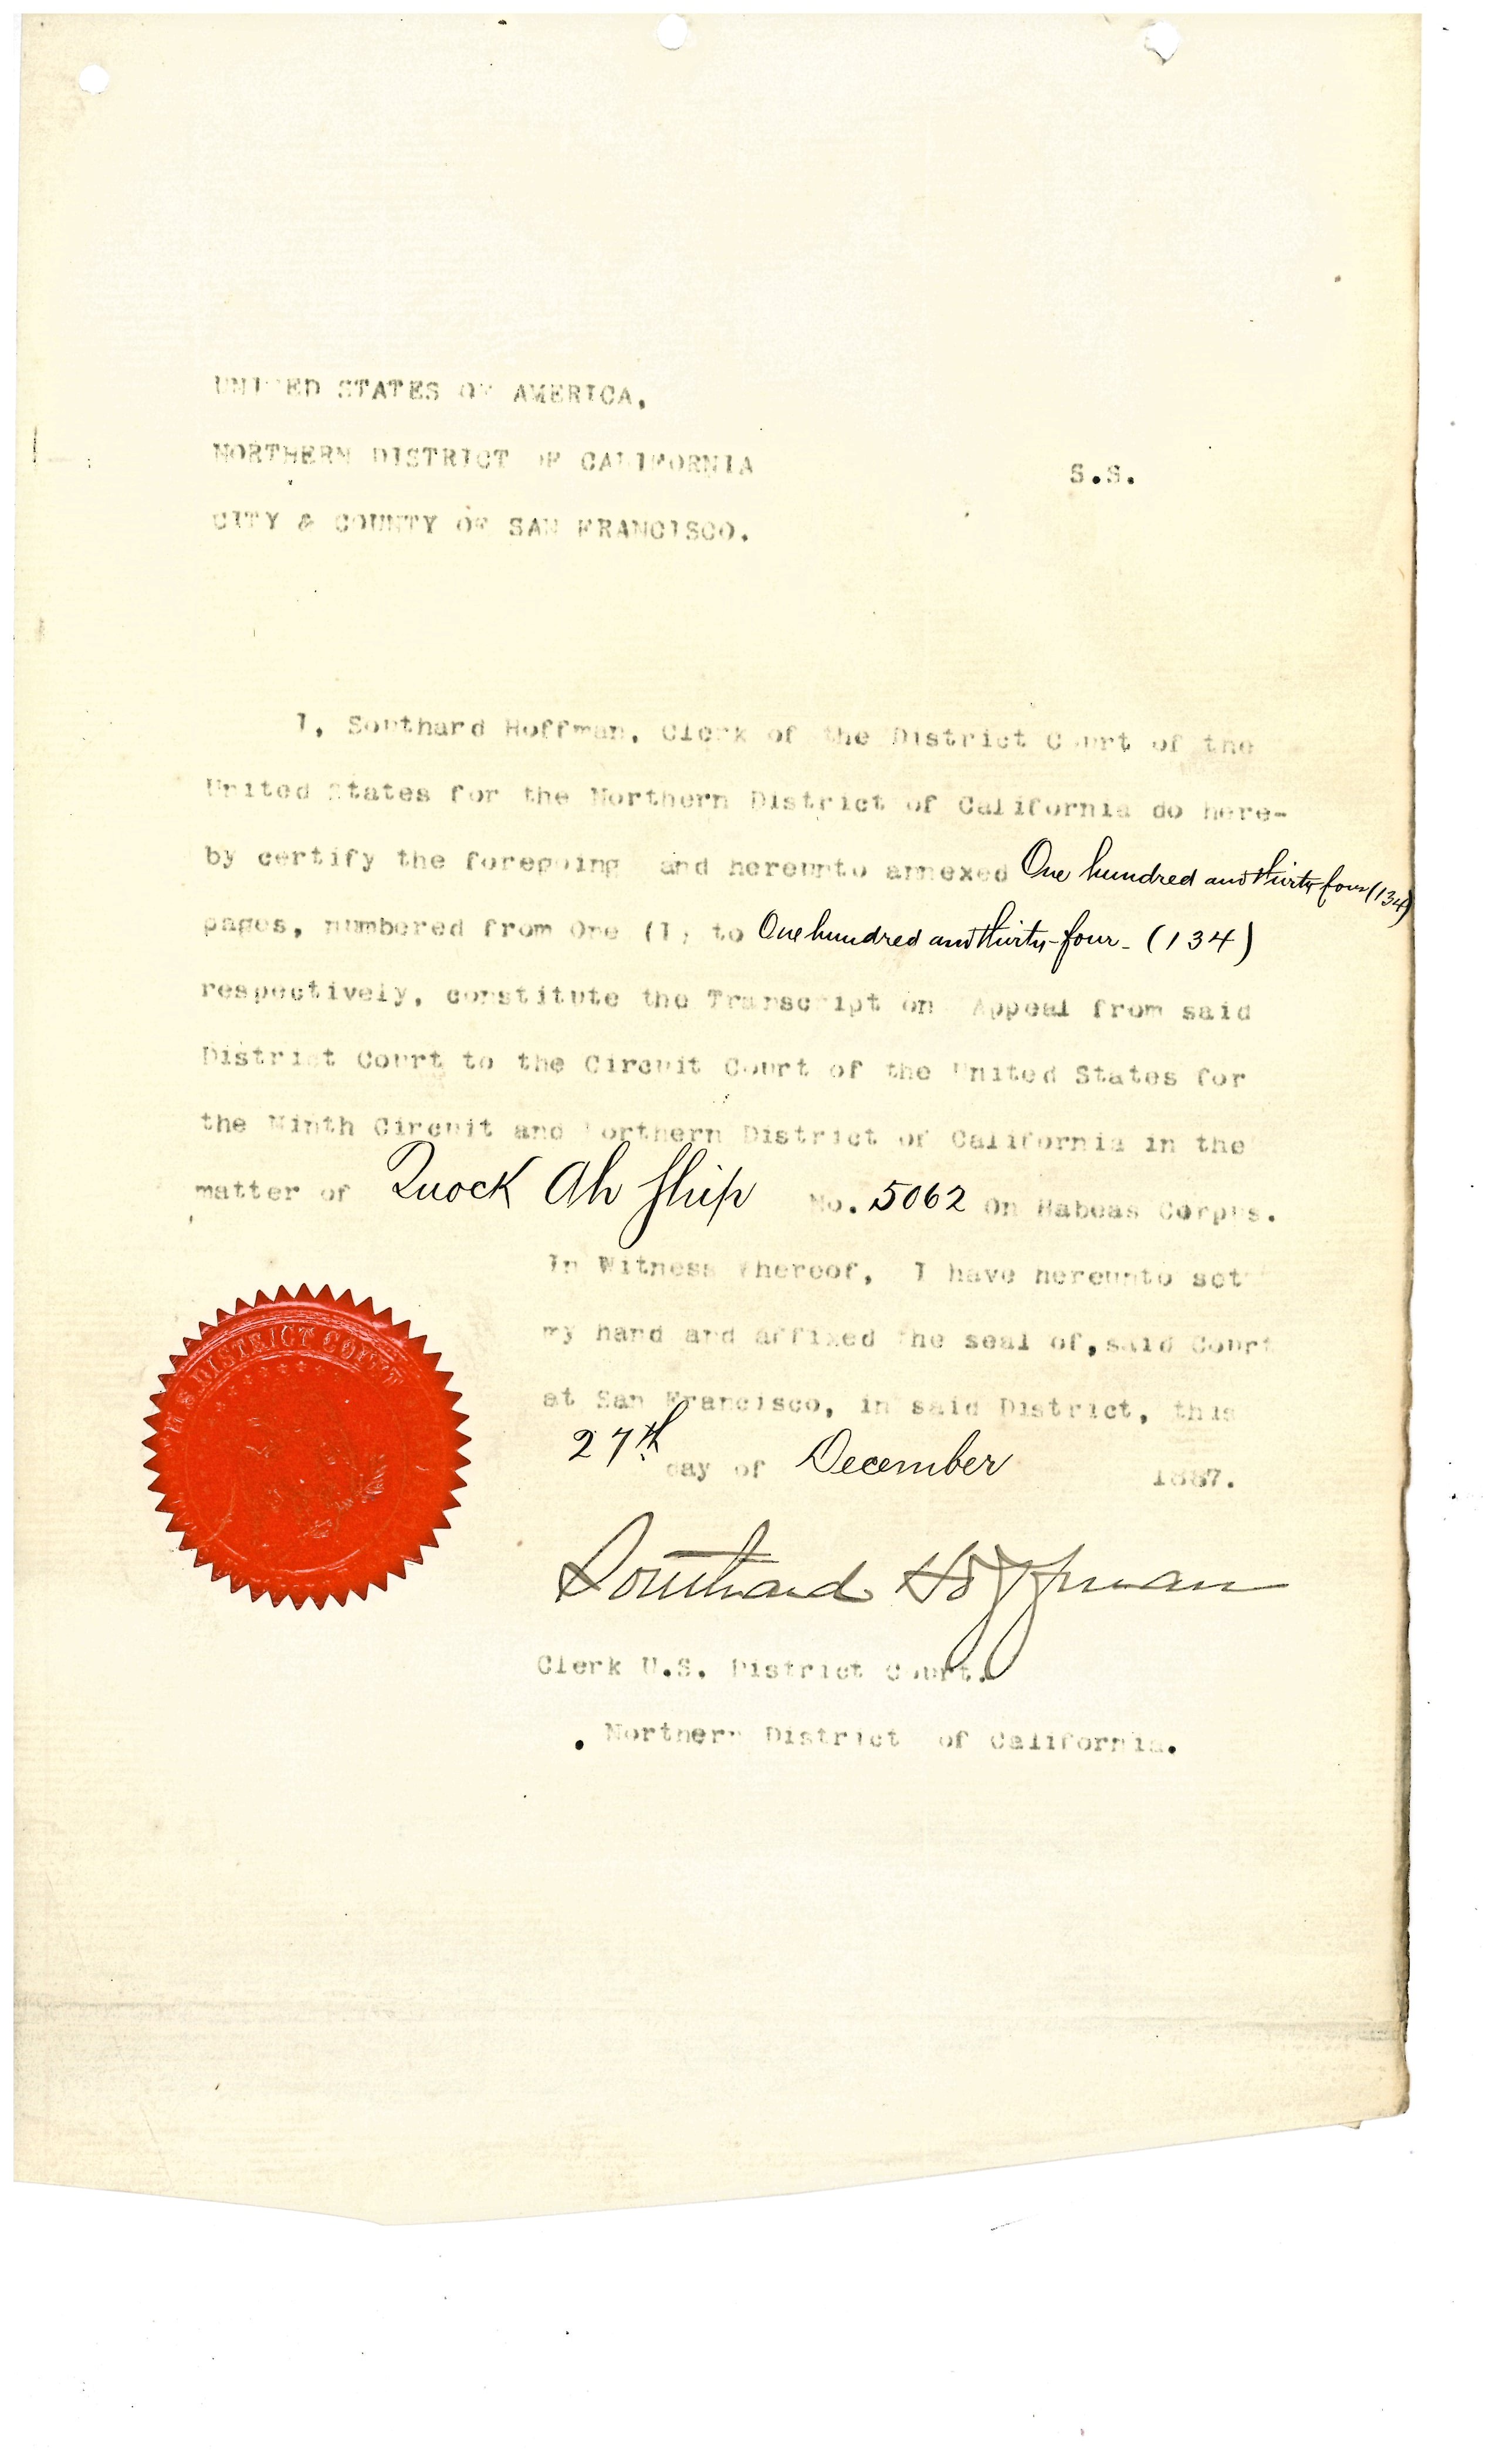 UNITED STATES OF AMERICA,
NORTHERN DISTRICT OF CALIFORNIA
S.S.
CITY & COUNTY OF SAN FRANCISCO.
I, Southard Hoffman, Clerk of the District Court of the
United States for the Northern District of California do here-
by certify the foregoing and hereunto annexed One hundred and thirty four (134)
pages, numbered from One (1) to One hundred and thirty-four- (134)
respectively, constitute the Transcript on Appeal from said
District Court to the Circuit Court of the United States for
the Ninth Circuit and Northern District of California in the
matter of Quock Ah Ship No. 5062 On Habeas Corpus.
In Witness Whereof, I have hereunto set
my hand and affixed the seal of, said Court
at San Francisco, in said District, this
27th day of December 1887.
U.S. DISTRICT COURT
Southard Hoffman
Clerk U.S. District Court.
Northern District of California.